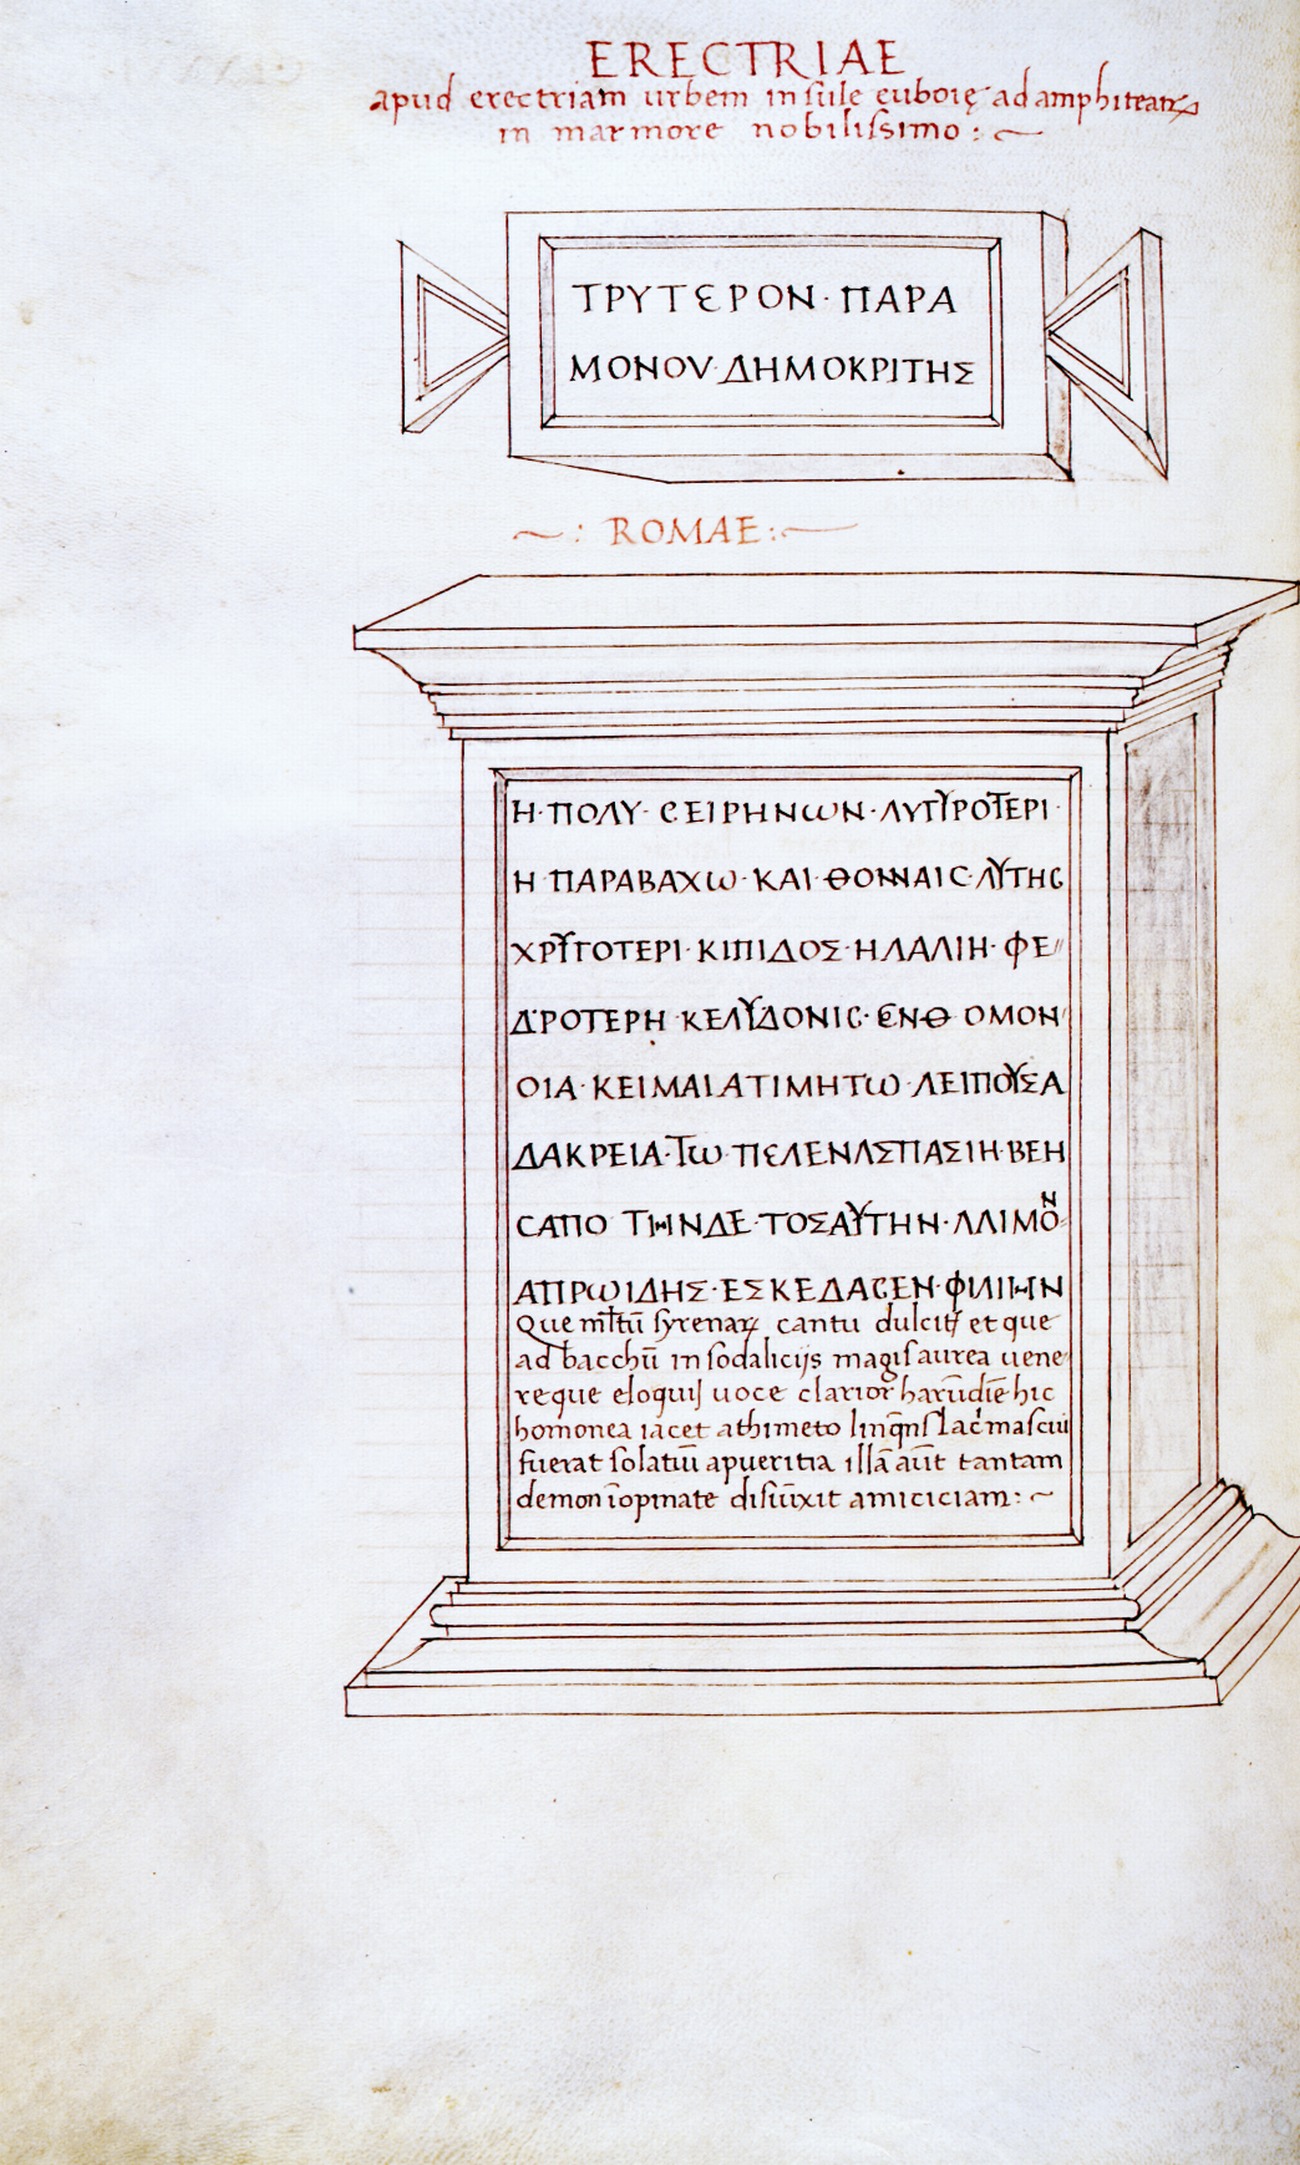 ERECTRIAE
apud erectriam urbem insule euboię ad amphiteatrꝝ
in marmore nobilissimo :~
ΤΡΥΤΕΡΟΝ· ΠΑΡΑ
ΜΟΝΟΥ·ΔΗΜΟΚΡΙΤΗΣ
~: ROMAE:~
Η·ΠΟΛΥ· CΕΙΡΗΝωΝ·ΛΥΓΥΡΟΤΕΡΙ·
Η ΠΑΡΑΒΑΧω· ΚΑΙ·ΘΟΙΝΝΑΙC·ΛΥΤΗC
ΧΡΥΓΟΤΕΡΙ·ΚΙΠΙΔΟΣ·ΗΛΑΛΙΗ· ΦΕ//
ΔΡΟΤΕΡΗ ΚΕΛΥΔΟΝΙC· ЄΝΘ ΟΜΟΝ
ΟΙΑ· ΚΕΙΜΑΙΑΤΙΜΗΤω ΛΕΙΠΟΥΣΑ
ΔΑΚΡΕΙΑ·Τω·ΠΕΛΕΝΛΣΠΑΣΙΗ·ΒΕΗ
CΑΠΟ ΤΗΙΝΔΕ·ΤΟΣΑΥΤΗΝ·ΛΛΙΜΟΝ
ΑΠΡωΙΔΗΣ·ΕΣΚΕΔΑCΕΝ·ΦΙΛΙΗΝ
Que ml̃tũ syrenaꝝ cantu dulcis et que
ad bacchũ in sodalicijs magis aurea uene
reque eloquij uoce clarior harũdiẽ hic
homonea iacet athimeto linq̃ns lac̃mas cui
fuerat solatiũ a pueritia illã aũt tantam
demon ĩopinate disiũxit amiciciam:~